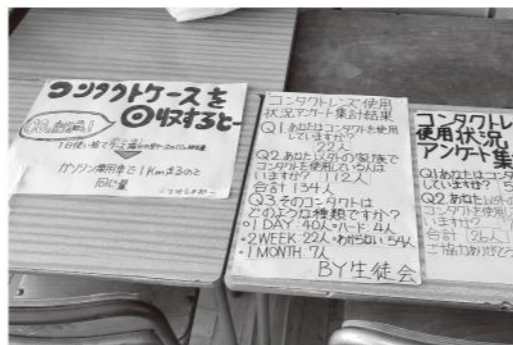 コンタクトケースを
回収すると
CO₂削減!
ガソリン乗用車で1Km走るのと
同じ量
コンタクトレンズ使用
状況アンケート集計結果
Q1.あなたはコンタクトを使用
していますか?
22人
Q2.あなた以外の家族で
コンタクトを使用している人は
いますか? 112人
合計134人
Q3.そのコンタクトは
どのような種類ですか?
•1DAY:40人 •ハード:4人
•2WEEK:22人 •わからない:54人
•1MONTH:7人
BY生徒会
コンタクトレ
使用状況
アンケート集
Q1.あなたはコンタ
していますか? 5
Q2.あなた以外の
コンタクトを使用し
いますか?
合計126人
ご協力ありがとう